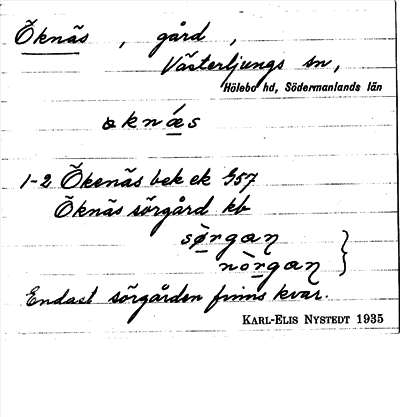 Öknäs, gård,
Västerljungs sn,
Hölebo hd, Södermanlands län
øknæ̀s
1-2 Ökenäs bek ek G57
Öknäs sörgård kb
sø̀rgaɳ }
nòrgaɳ
Endast sörgården finns kvar.
KARL-ELIS NYSTEDT 1935